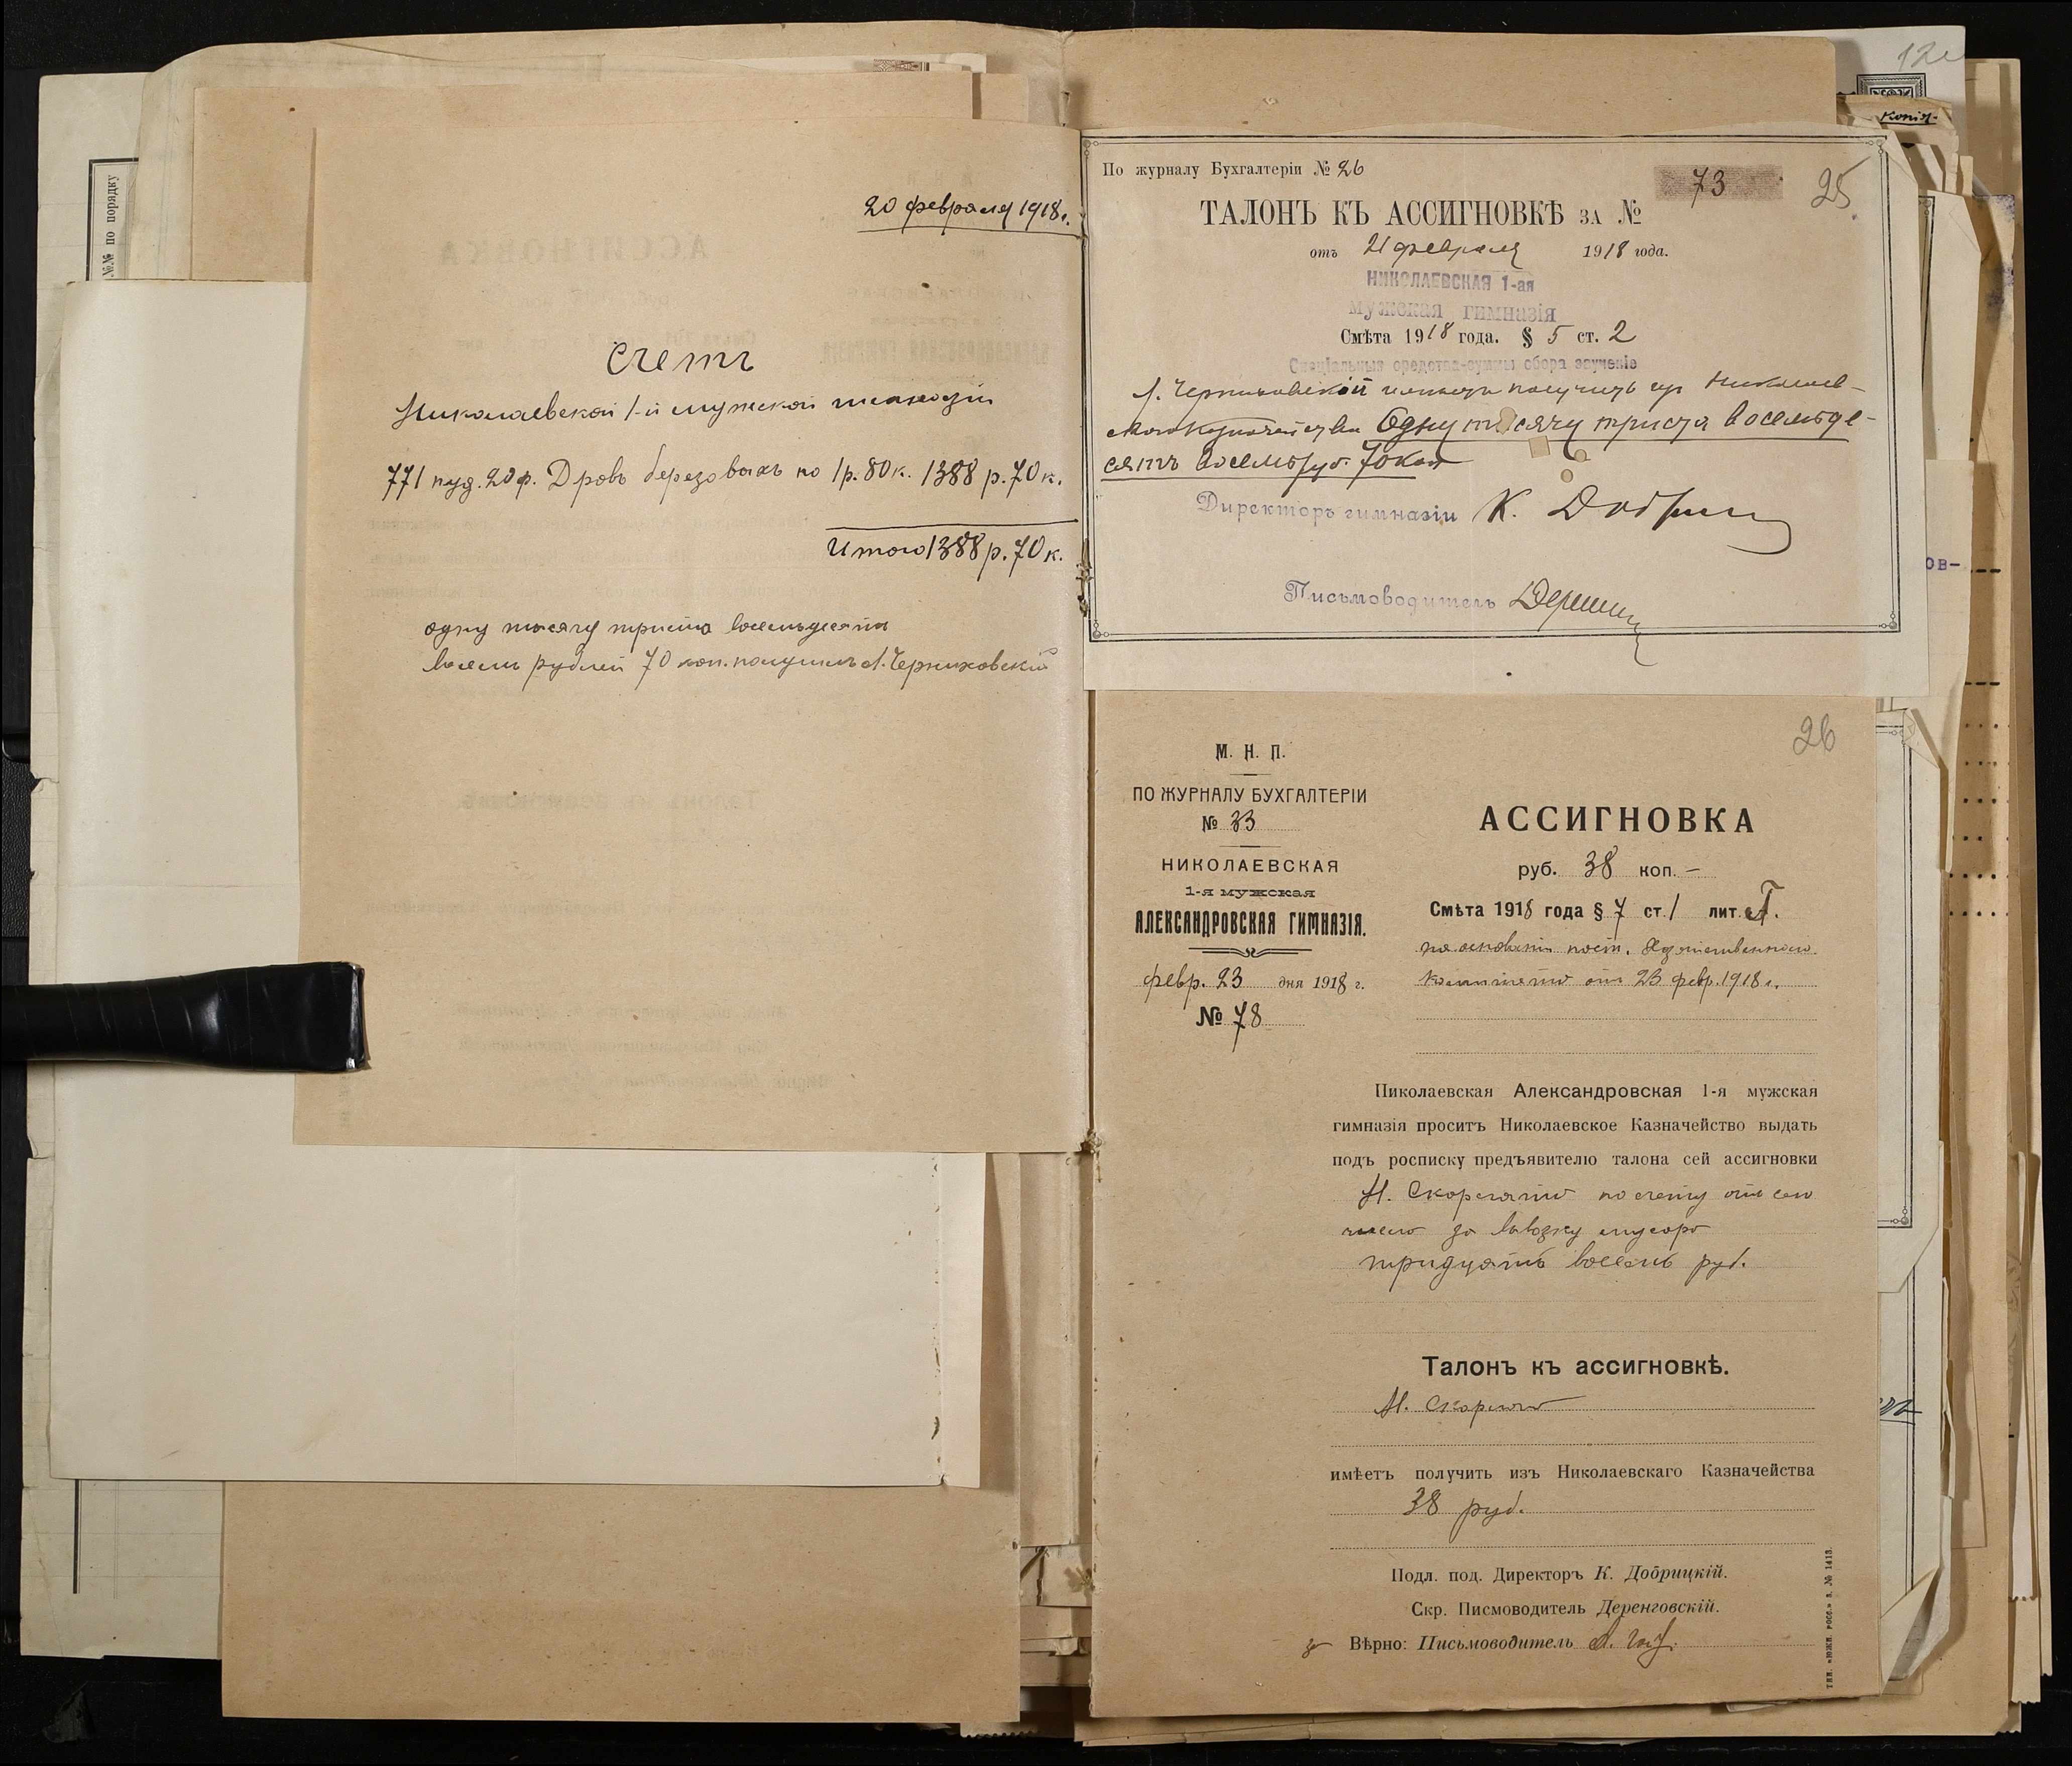 №№ по порядку
20 февраля 1918 г.
Счетъ
Николаевской 1-й мужской гимназіи
771 пуд. 20 ф. Дровъ березовыхъ по 1 р. 80 к. 1388 р. 70 к.
Итого 1388 р. 70 к.
одну тысячу триста восемьдесятъ
восемь рублей 70 коп. получилъ А. Черниховскій
Копія
По журналу Бухгалтеріи № 26
73
25
ТАЛОНЪ КЪ АССИГНОВКѢ ЗА №
отъ 21 февраля 1918 года.
НИКОЛАЕВСКАЯ 1-ая
мужская гимназія
Смѣта 1918 года. § 5 ст. 2
Спеціальныя средства-суммы сбора за ученіе
А. Черниховскій имѣетъ получить изъ Николаев-
скаго Казначейства Одну тысячу триста восемьде-
сятъ восемь руб. 70 коп
Директоръ гимназіи К.
Письмоводитель
ов-
26
М. Н. П.
ПО ЖУРНАЛУ БУХГАЛТЕРІИ
№ 33
НИКОЛАЕВСКАЯ
1-я мужская
АЛЕКСАНДРОВСКАЯ ГИМНАЗІЯ.
февр. 23 дня 1918 г.
№ 78
АССИГНОВКА
руб. 38 коп. —
Смѣта 1918 года § 7 ст. 1 лит.
на основаніи пост. Хозяйственнаго
Комитета отъ 23 февр. 1918 г.
Николаевская Александровская 1-я мужская
гимназія проситъ Николаевское Казначейство выдать
подъ росписку предъявителю талона сей ассигновки
по счету отъ сего
числа за вывозку мусора
тридцать восемь руб.
Талонъ къ ассигновкѣ.
имѣетъ получить изъ Николаевскаго Казначейства
38 руб.
Подл. под. Директоръ К. Добрицкій.
Скр. Писмоводитель Деренговскій.
за Вѣрно: Письмоводитель
Тип. «Южн. Росс.» з. № 1413.